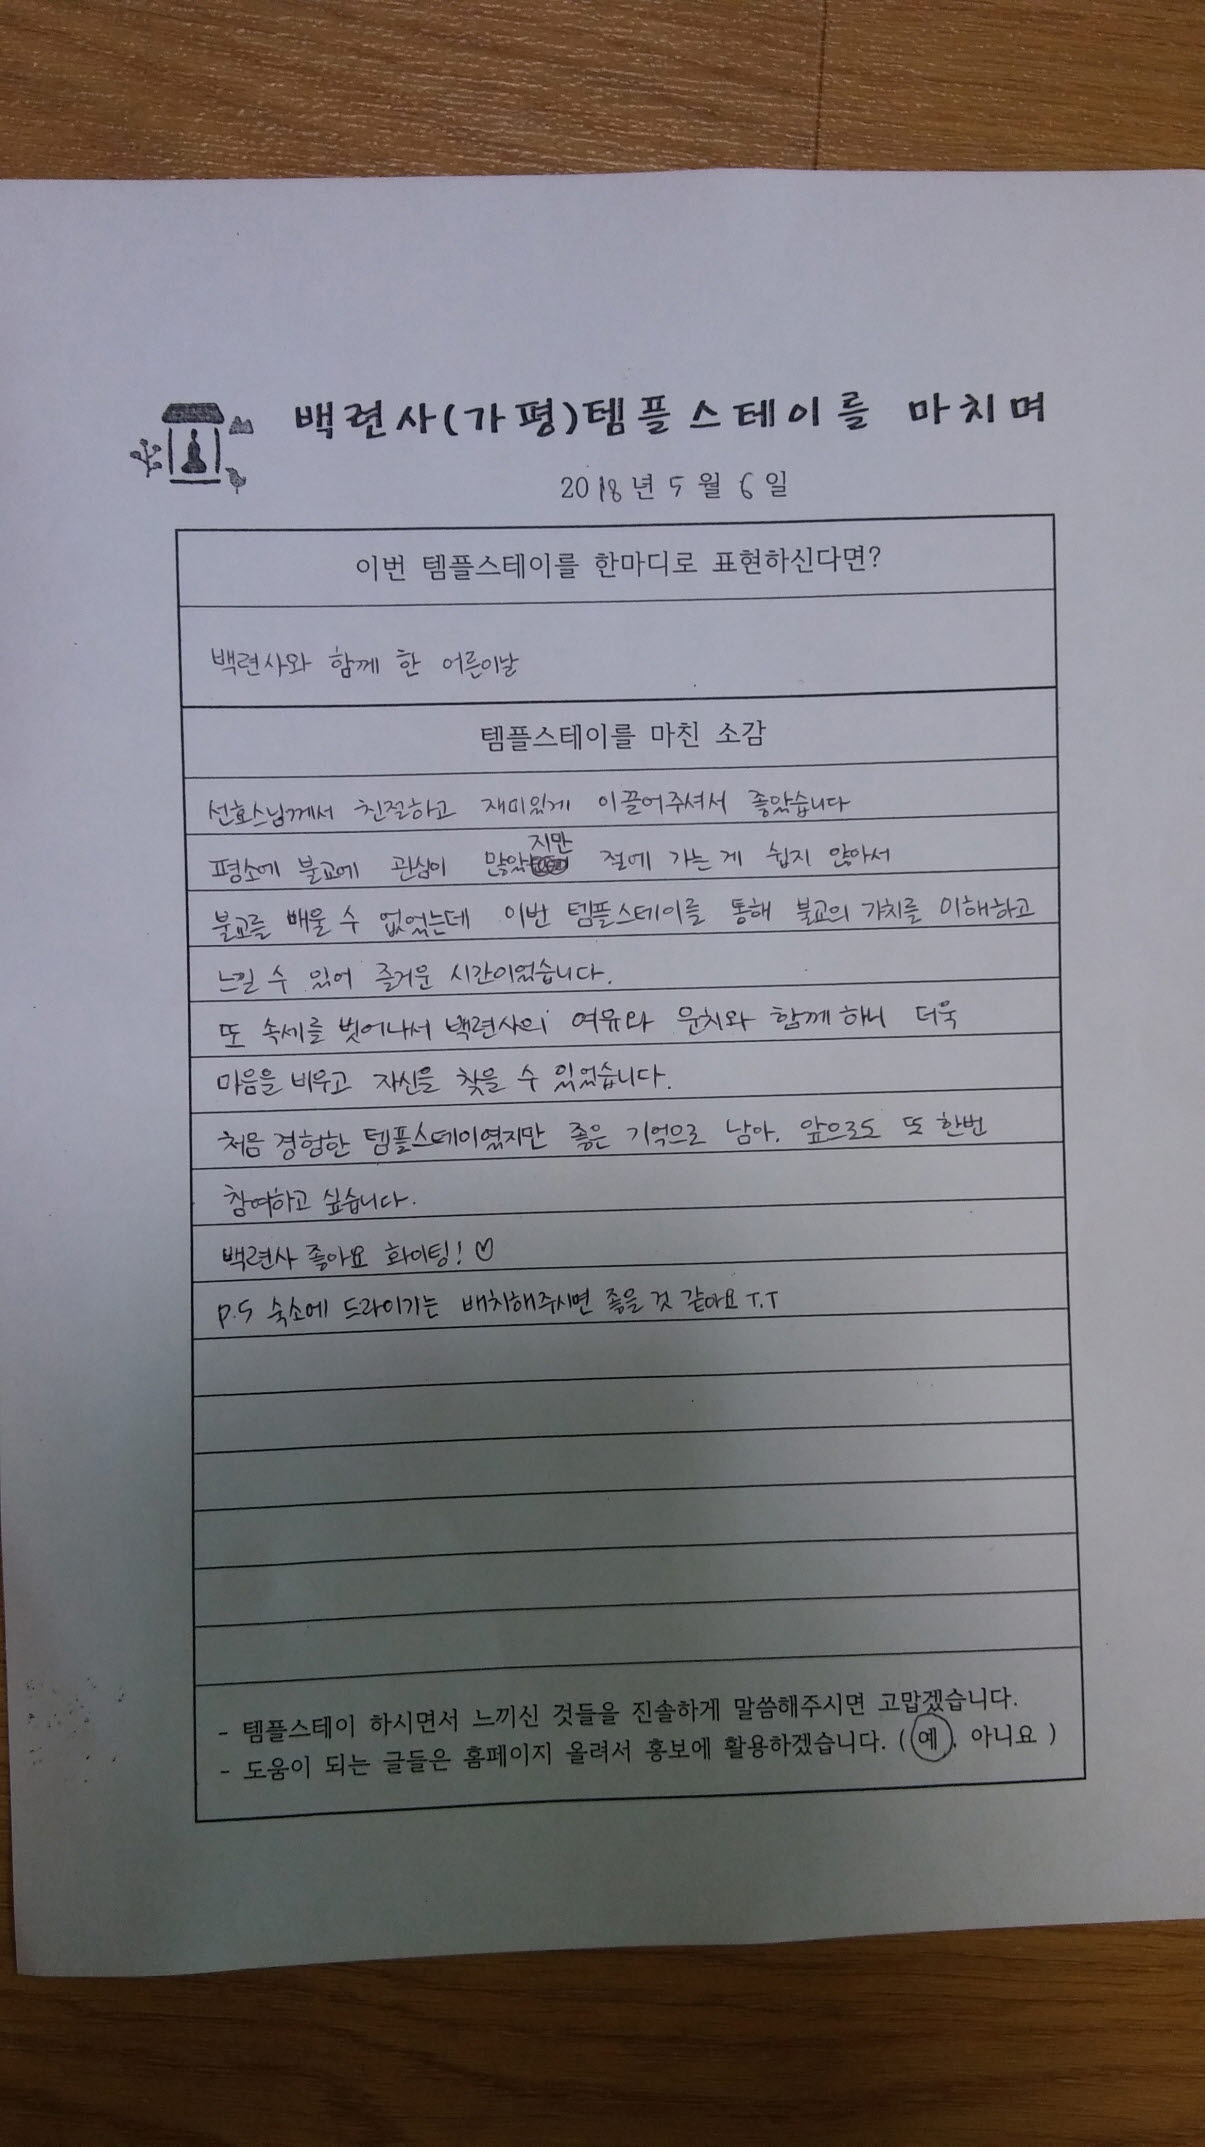 백련사(가평)템플스테이를 마치며
2018년 5월 6일
이번 템플스테이를 한마디로 표현하신다면?
백련사와 함께 한 어른이날
템플스테이를 마친 소감
선효스님께서 친절하고 재미있게 이끌어주셔서 좋았습니다
평소에 불교에 관심이 많았지만 절에 가는 게 쉽지 않아서
불교를 배울 수 없었는데 이번 템플스테이를 통해 불교의 가치를 이해하고
느낄 수 있어 즐거운 시간이었습니다.
또 속세를 벗어나서 백련사의 여유와 운치와 함께 하니 더욱
마음을 비우고 자신을 찾을 수 있었습니다.
처음 경험한 템플스테이였지만 좋은 기억으로 남아. 앞으로도 또 한번
참여하고 싶습니다.
백련사 좋아요 화이팅! ♡
p.s 숙소에 드라이기는 배치해주시면 좋을 것 같아요 T.T
- 템플스테이 하시면서 느끼신 것들을 진솔하게 말씀해주시면 고맙겠습니다.
- 도움이 되는 글들은 홈페이지 올려서 홍보에 활용하겠습니다. ( 예, 아니요 )